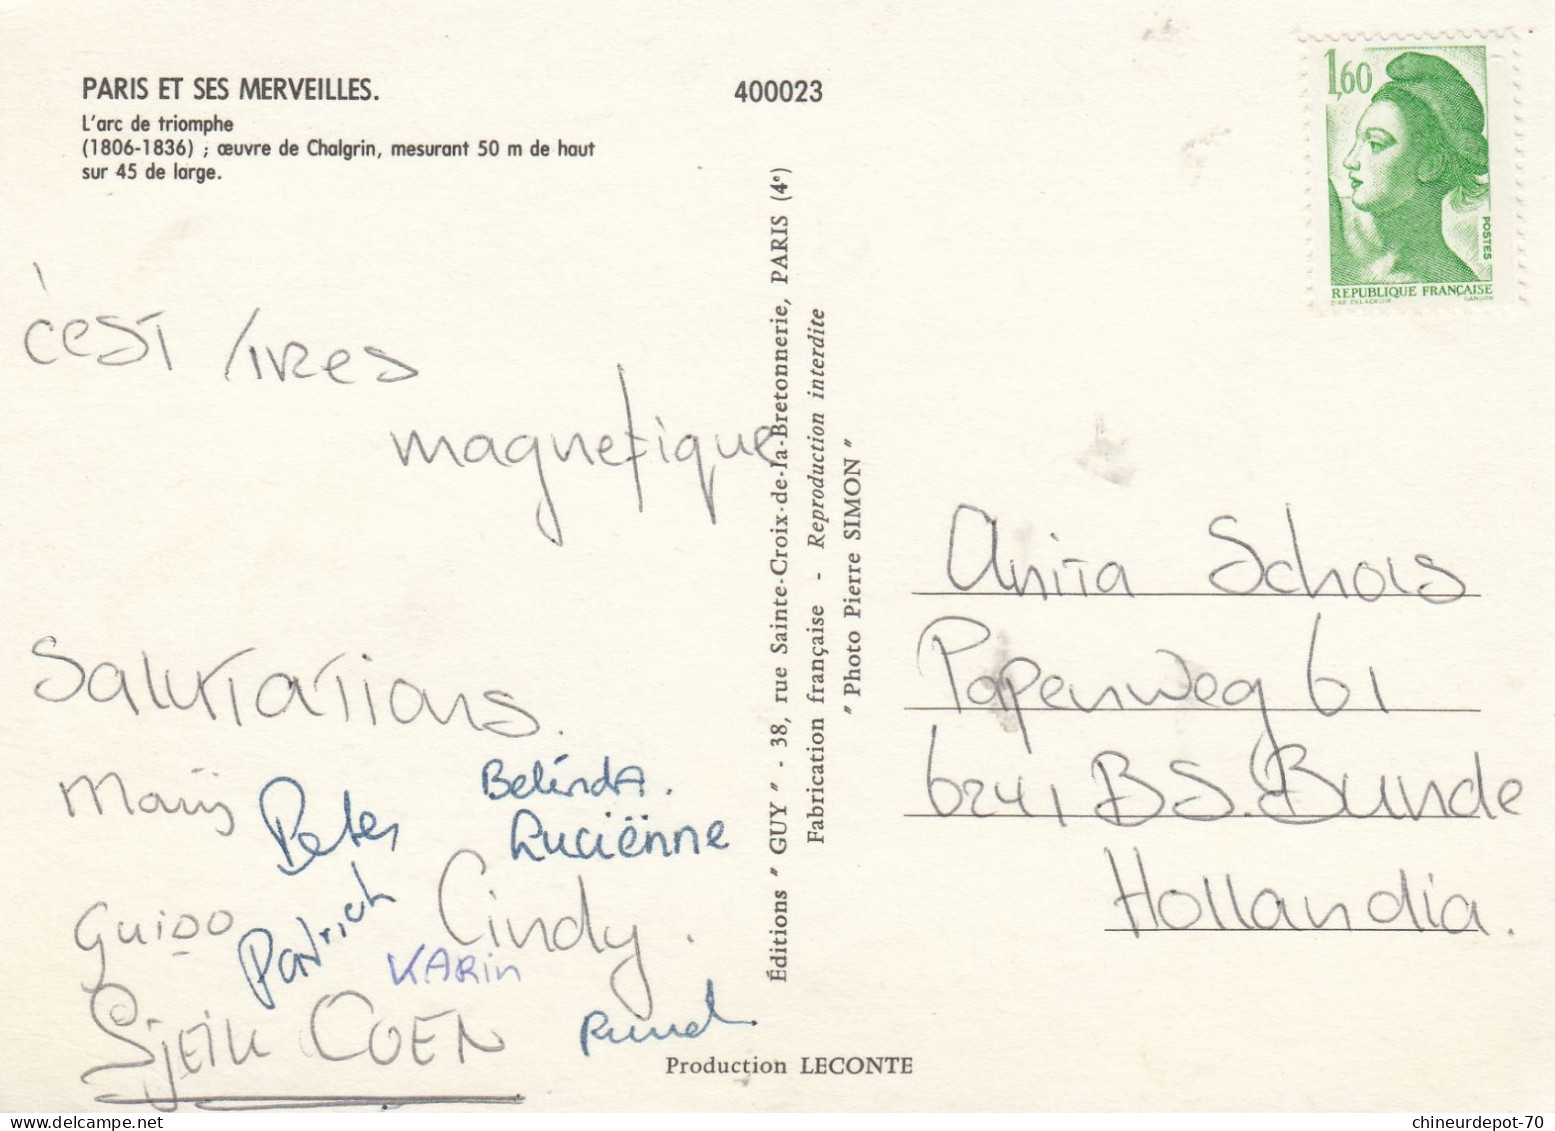 PARIS ET SES MERVEILLES.
L'arc de triomphe
(1806-1836) ; œuvre de Chalgrin, mesurant 50 m de haut
sur 45 de large.
400023
c'est tres
magnetique
Salutations.
Marij
Peter
Belinda.
Luciënne
Guido
Patrick
Cindy.
KARin
Sjeik COEN
Ruud
Éditions " GUY " - 38, rue Sainte-Croix-de-la-Bretonnerie, PARIS (4e)
Fabrication française - Reproduction interdite
" Photo Pierre SIMON "
Production LECONTE
1,60
POSTES
REPUBLIQUE FRANÇAISE
D'AP. DELACROIX GANDON
Anita Schols
Papenweg 61
6241 BS. Bunde
Hollandia.
chineurdepot-70